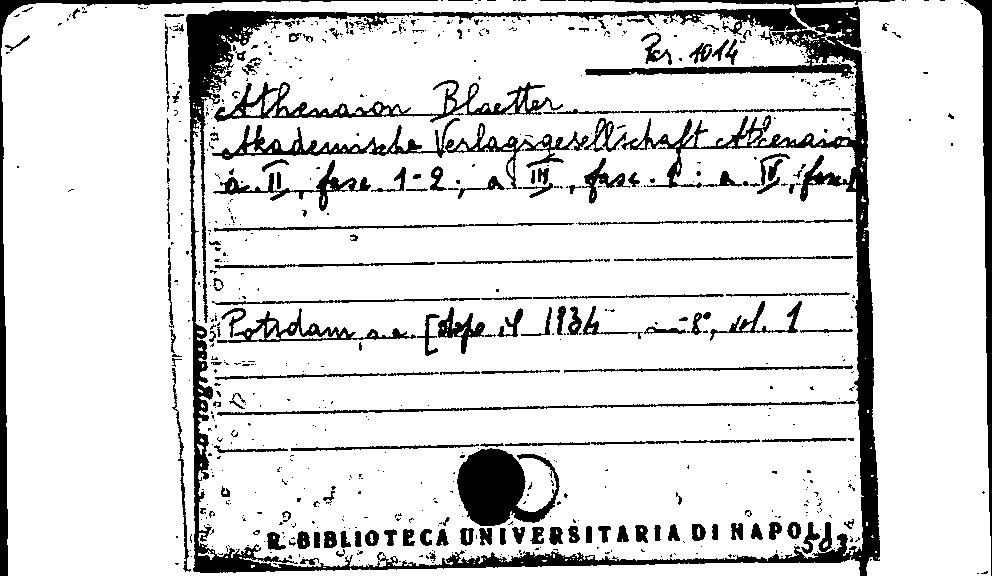 Per. 1014
Athenaion Blaetter.
Akademische Verlagsgesellschaft Athenaion
a. II, fasc. 1-2; a. III, fasc. 1; a. IV, fasc. [
Potsdam, s.a. [dopo il 1934 , in-8°, vol. 1
R. BIBLIOTECA UNIVERSITARIA DI NAPOLI